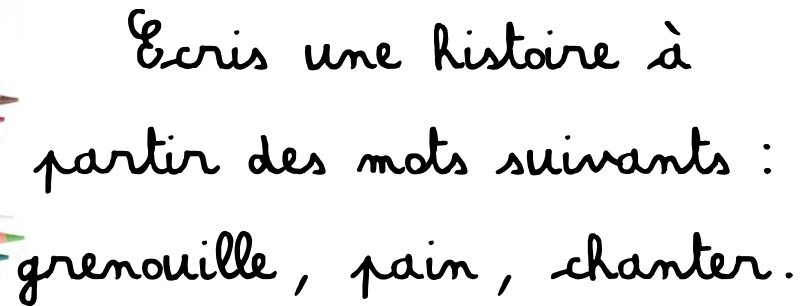 Ecris une histoire à
partir des mots suivants :
grenouille, pain, chanter.